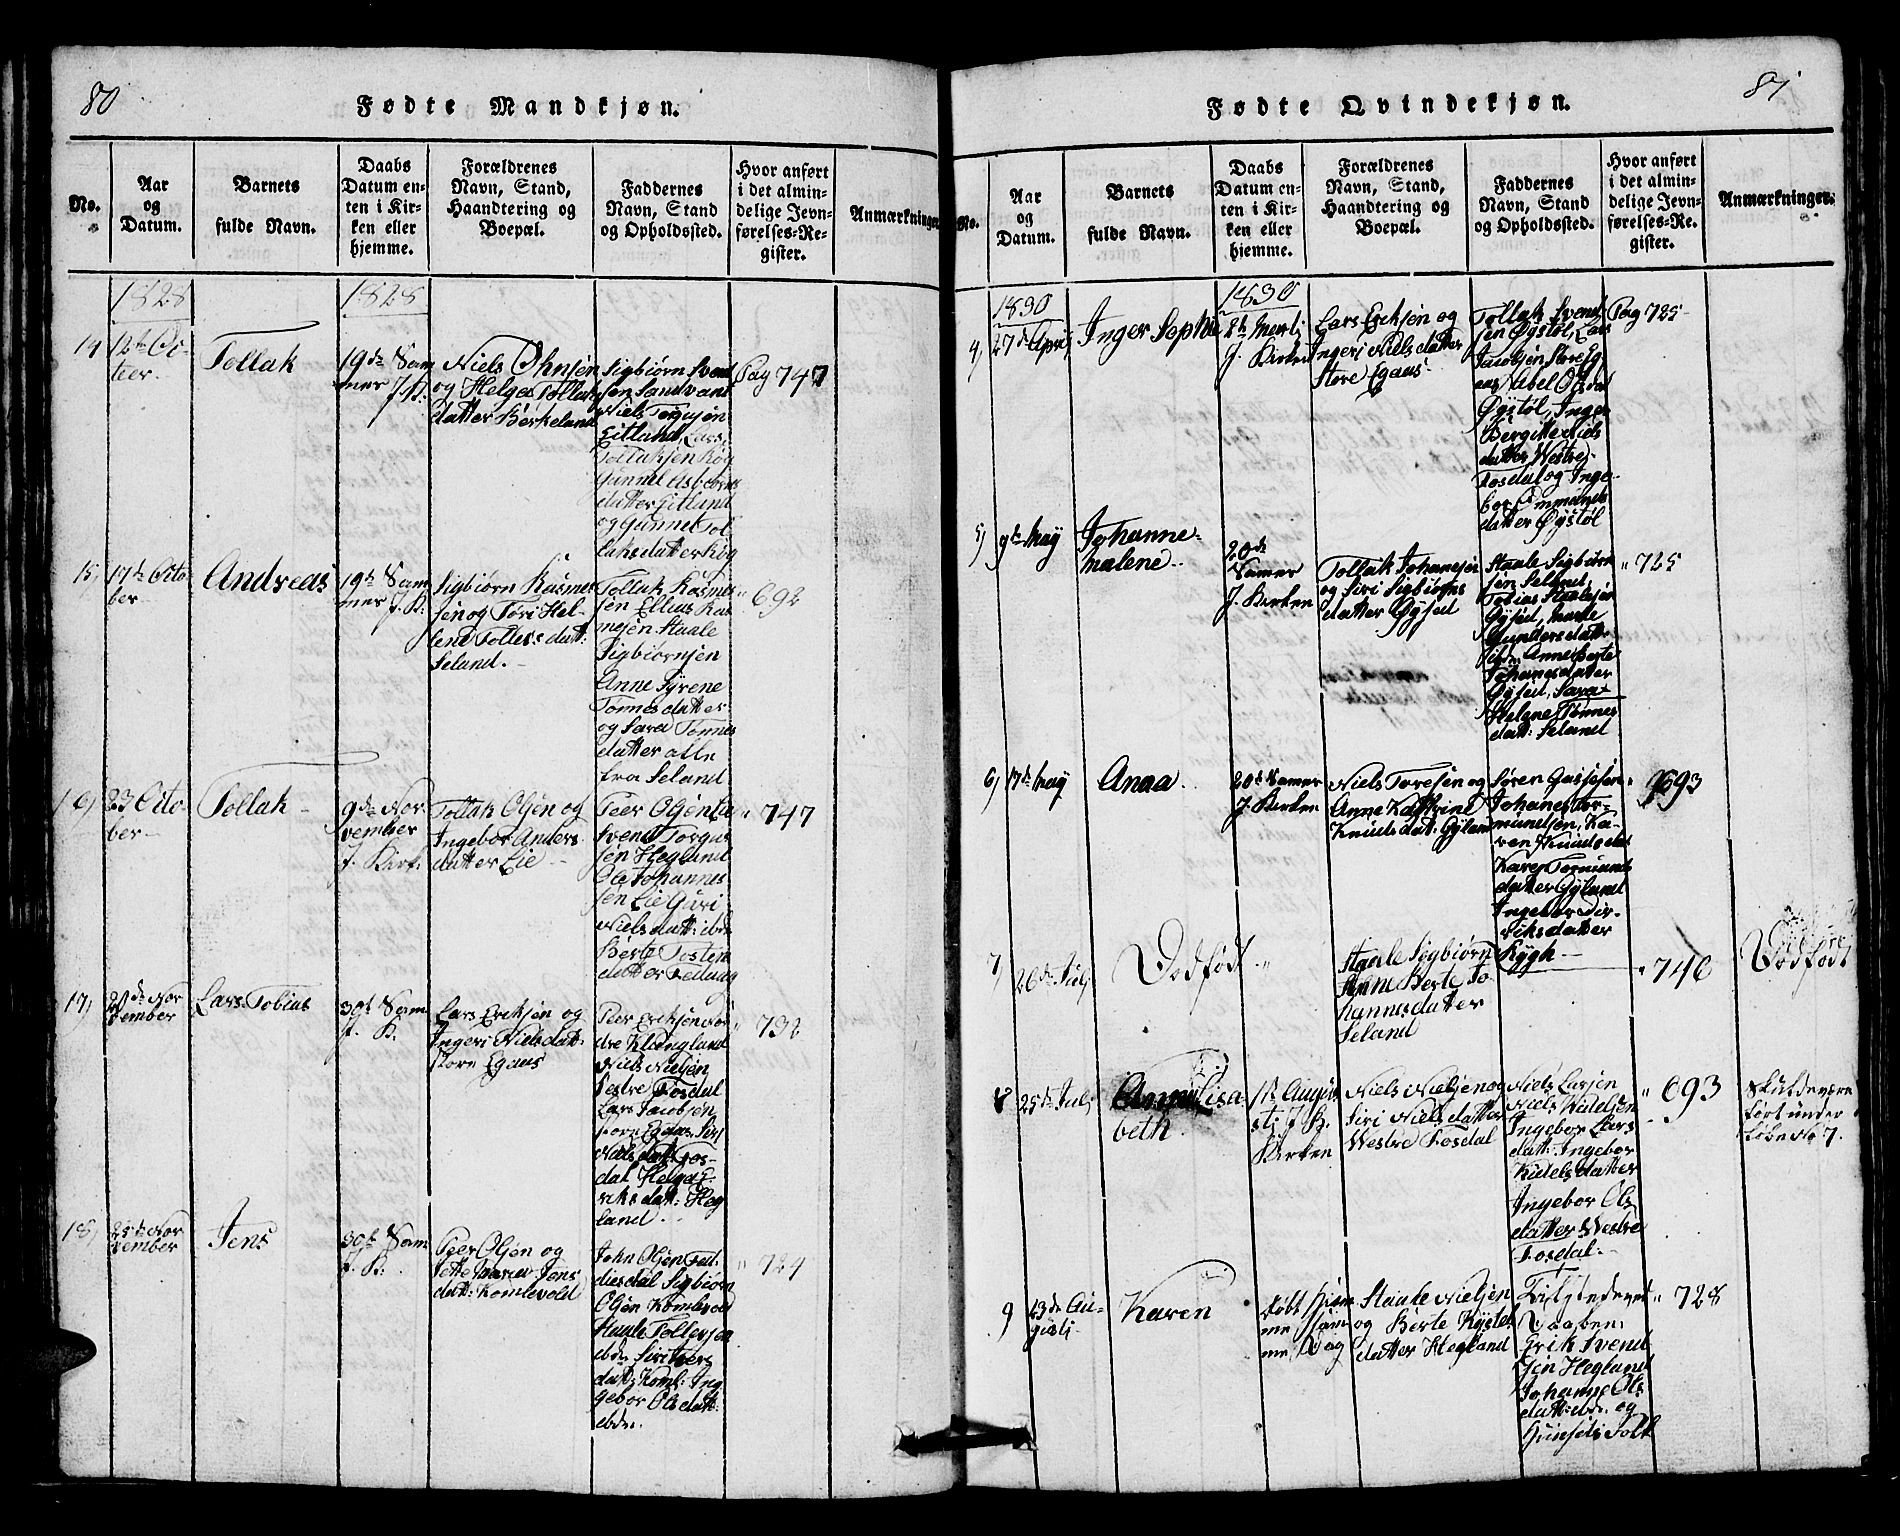 80
Fødte Mandkjøn.
No.
Aar
og
Datum.
Barnets
fulde Navn.
Daabs
Datum en-
ten i Kir-
ken eller
hjemme.
Forældrenes
Navn, Stand,
Haandtering og
Boepæl.
Faddernes
Navn, Stand
og Opholdssted.
Hvor anført
i det almin-
delige Jevn-
førelses-Re-
gister.
Anmærkninger.
1828
1828
14
12te Oc-
teer.
Tollak
19de Sam
mer J. K:
Niels Ohnsen
og Helga Tollak
datter Berkeland
Sigbiørn Svend
sen Sandvand
Niels Torjusen
Eitland, Lars
Tollaksen Røg
Gunnil Asbiørns
datter Eitland
og Gunnel Tol
laksdatter Røg
Pag 747
15)
17de Octo
ber
Andreas
19de Sam
mer J. K:
Sigbiørn Rasmus
sen og Tori Hel
lene Tollers datt:
Seland.
Tollak Rasmus
sen Ellias Ras
musen Staale
Sigbiørnsen
Anne Syrene
Tønnesdatter
og Sara Tønnes
datter alle
fra Seland
" 692
16)
23 Octo
ber
Tollak
9de No
vember
J. Kirk.
Tollak Olsen og
Ingebor Anders
datter Lie
Peer Olsen Lie
Svend Torgus
sen Heglund
Ole Johannes
sen Lie Guri
Nielsdatt: ibd.
Berte Tosten
datter Fedlang
" 747
17)
20de No
vember
Lars Tobias
30te Sam
J. K.
Lars Ericksen og
Ingeri Nielsdatt:
store Egaas
Peer Ericksen Nor
dre Klængland
Niels Nielsen
Vestre Fosdal
Lars Jacobsen
store Egaas Siri
Nielsdatt: Fos-
dal Helga E
riksdatt: Heg
land.
" 732
18)
25de No
vember
Jens
30te Sam
J. K.
Peer Olsen og
Jette Marie Jens
datt: Komlevold
John Olsen Fed
diesdal Sigbiørn
Olsen Komlevold
Staale Tollersen
ibd. Siri Iver
datt: Koml: Ing
gebor Olsdatt:
ibd.
" 724
81
Fødte Qvindekjøn.
No.
Aar
og
Datum.
Barnets
fulde Navn.
Daabs
Datum en-
ten i Kir-
ken eller
hjemme.
Forældrenes
Navn, Stand,
Haandtering og
Boepæl.
Faddernes
Navn, Stand
og Opholdssted.
Hvor anført
i det almin-
delige Jevn-
førelses-Re-
gister.
Anmærkninger.
1830
1830
4)
27de April
Inger Sophie
8de Marti
J. Kirken
Lars Ericksen og
Ingeri Nielsdatter
Store Egaas
Tollak Svend
sen Øystøl, Lars
Jacobsen Store Eg
aas Abel Olsdat
Øystøl, Inger
Bergitte Niels
datter Westre
Fosdal og Inge-
bor Omminds
datter Øystøl
Pag 725
5)
9de May
Johanne
malene
20de
Samer
J. Kirken
Tollak Johanesen
og Siri Sigbiørns
datter Øysed
Staale Sigbiørn
sen Seland,
Tobias Staalesen
Øysed, Marte
Gundersdatt.
ibd. Anne Berte
Johanesdatter
Øysed, Sara
Helene Tønnes
datt: Seland
" 725
6)
17de May
Anna
20de Samer
J. Kirken
Niels Toresen og
Anne Kathrine
Knudsdatt: Gyland
Søren Gasjosen
Johanes Tor-
mundsen, Ka-
ren Knudsdat
Karen Tormund
datter Gyland
Ingebor Dir-
riksdatter
Rygh
" 693
7)
26de July
Dødfødt "
Staale Sigbiørn
Anne Berte Jo
hannesdatter
Seland
" 746
Dødfødt
8
25de July
Anne Lisa
beth
1ste Augu
sti J. K.
Kirken
Niels Nielsen og
Siri Nielsdatter
Westre Fosdal
Niels Larsen
Niels Nielsen
Ingebor Lars
datt: Ingebor
Nielsdatter
Ingebor Ols
datter Westre
Fosdal
" 693
Skulde være
ført under
Løbe No 7.
9
13de Au-
gusti
Karen
døbt hiem
me sam
me Dag
Staale Nielsen
og Berte Kystel
datter Hegland
Daaben:
Erik Svend
sen Hegland
Johanne Ols
datt: ibd. og
Huusets Folk
" 728